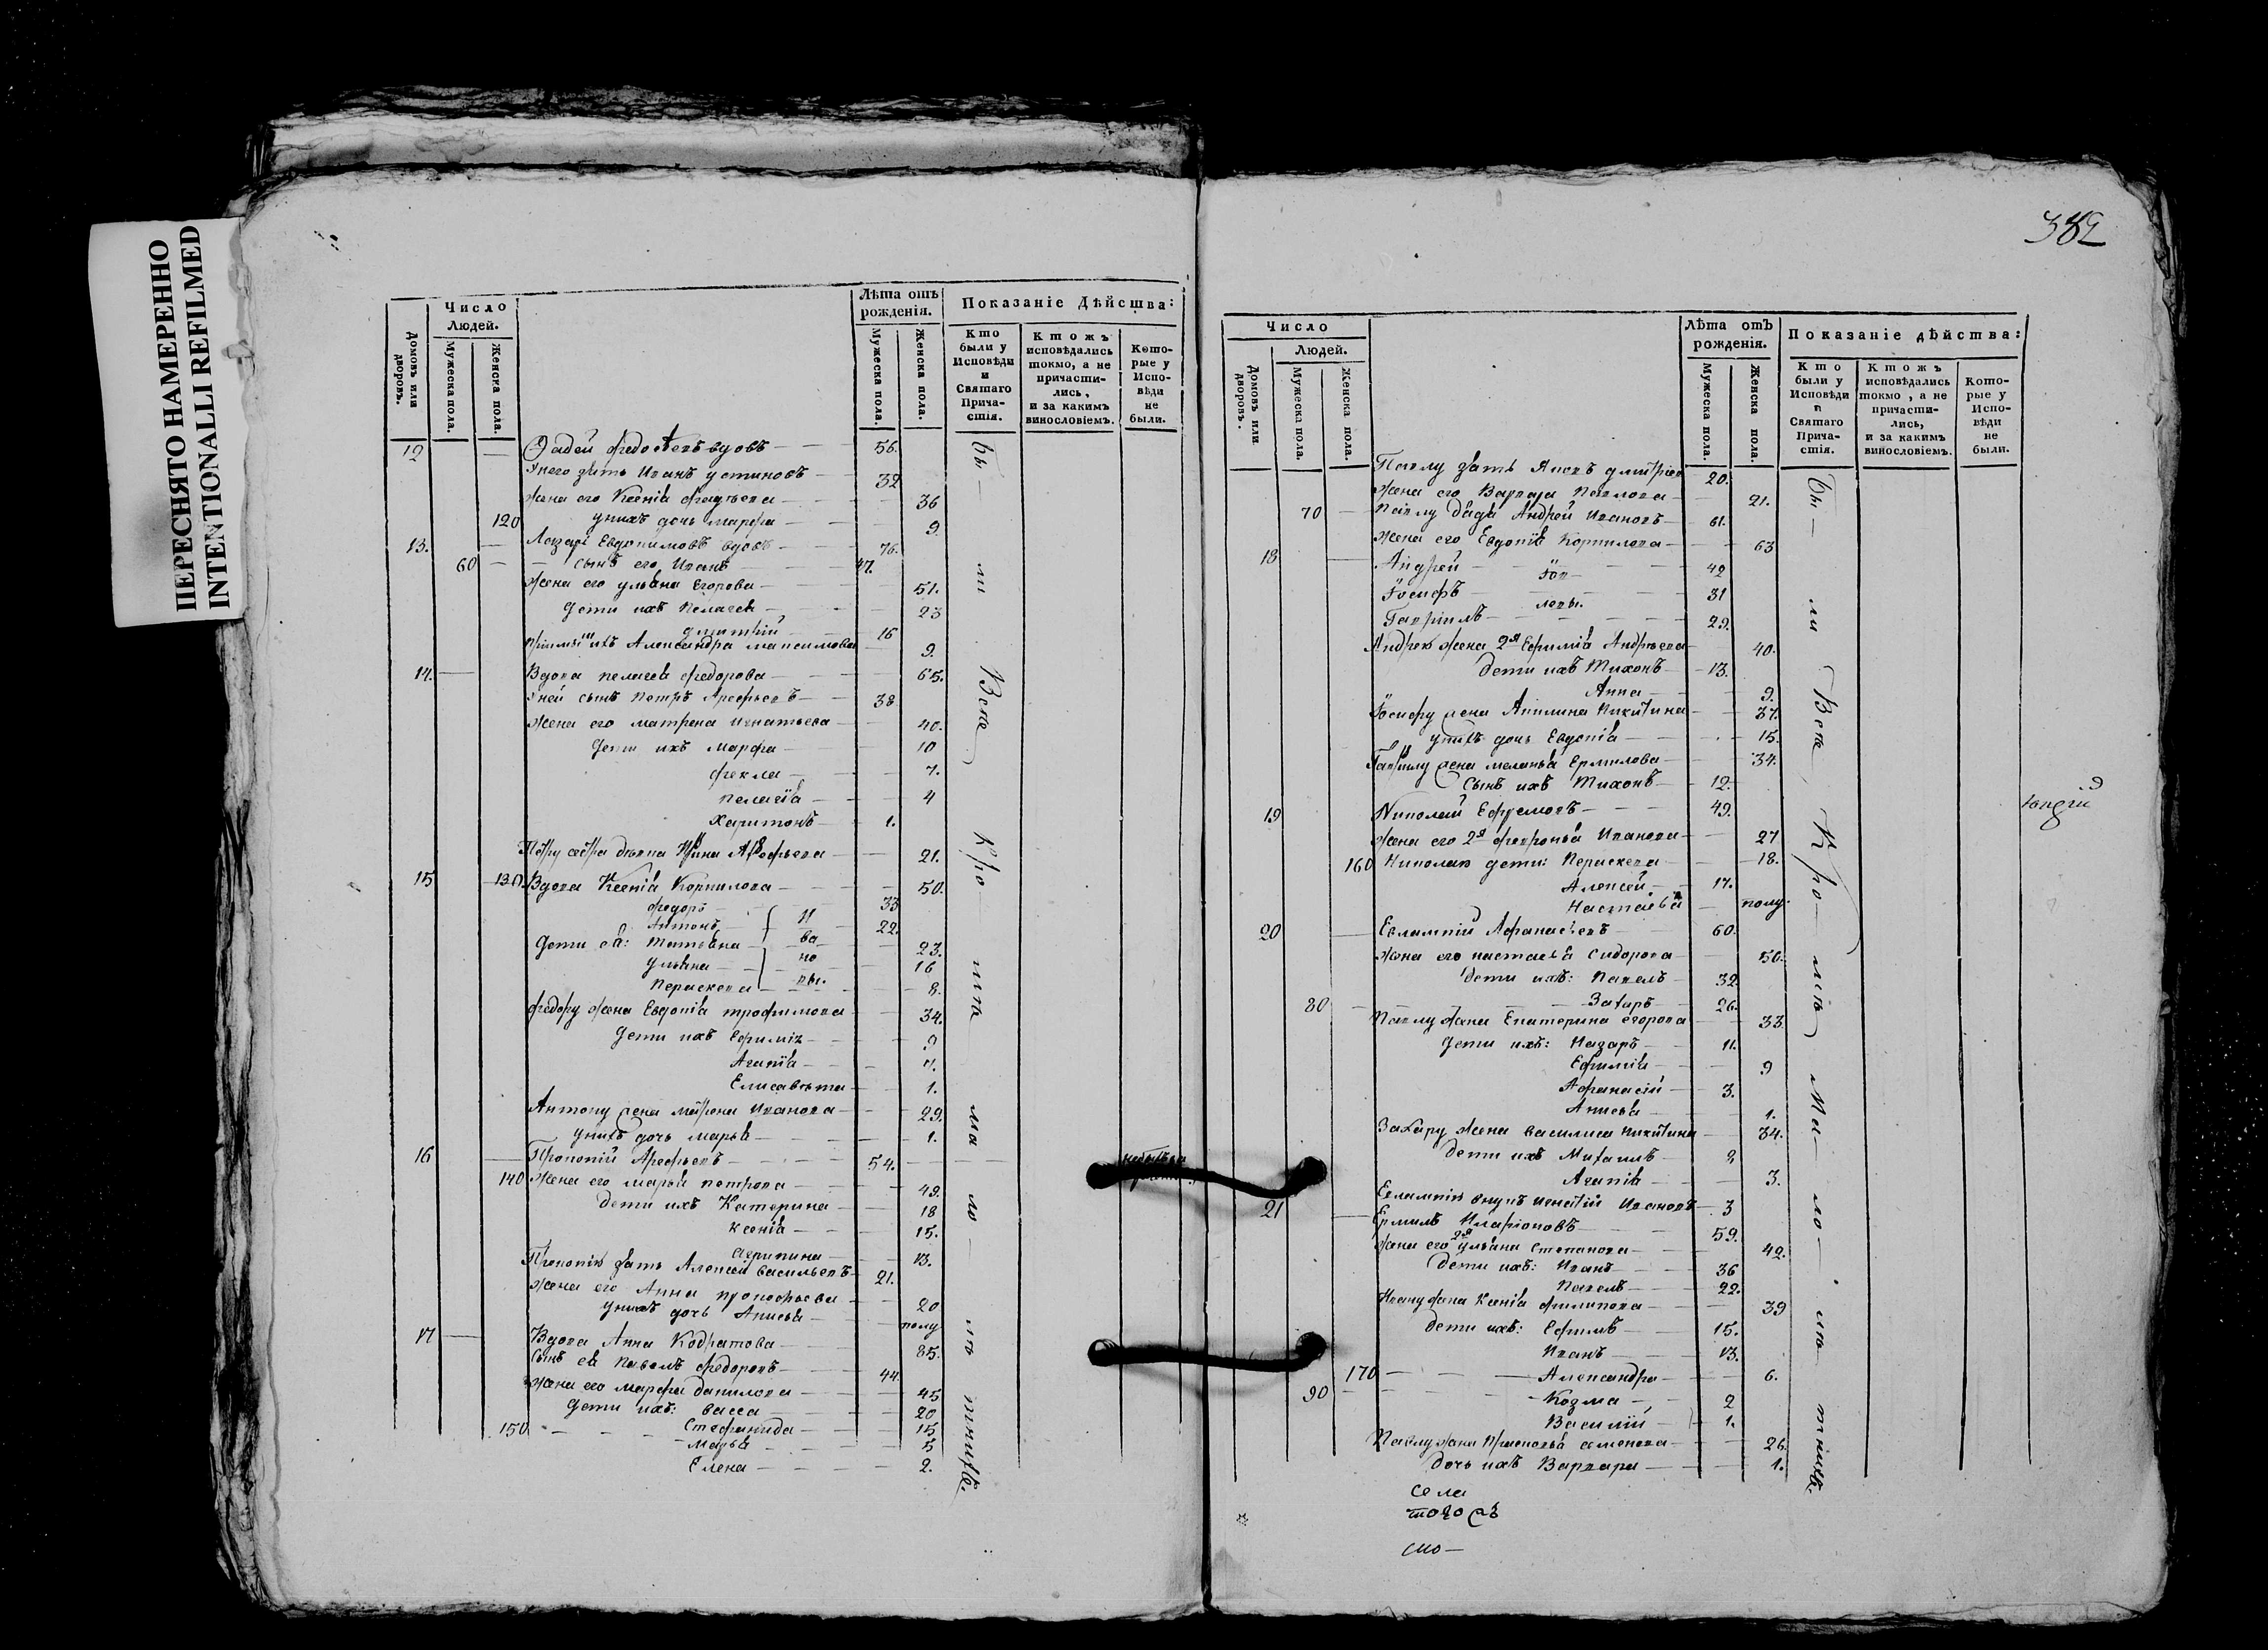 ПЕРЕСНЯТО НАМЕРЕННО
INTENTIONALLI REFILMED
Число
Людей.
Домовъ или дворовъ.
Мужеска пола.
Женска пола.
Лѣта отъ
рожденія.
Мужеска пола.
Женска пола.
Показаніе Дѣйства:
Кто
были у
Исповѣди
и
Святаго
Прича-
стія.
Ктожъ
исповѣдались
токмо, а не
причасти-
лись,
и за какимъ
винословіемъ.
Кото-
рые у
Испо-
вѣди
не
были.
12 Фадей федосѣевъ вдовъ 56.
Унего зять Иванъ устиновъ 32
жена его Ксенія фадѣева 36
120 унихъ дочь марфа 9
13. Евдокимовъ вдовъ 76.
60 сынъ его Иванъ 47.
жена его ульяна Егорова 51.
дети ихъ пелагея 23
дмитрій 16
ихъ Александра максимова 9.
14. Вдова пелагея федорова 65.
Уней сынъ петръ Арефьевъ 38
жена его матрена игнатьева 40.
дети ихъ марфа 10
фекла 7.
пелагія 4
Харитонъ 1.
Петру сестра девка Ирина Арефьева 21.
15 130. Вдова Ксенія Корнилова 50.
федоръ 33
Антонъ И 22.
дети ея: татьяна ва 23.
ульяна но 16
Пераскева вы. 8.
федору жена Евдокія трофимова 34.
дети ихъ Ефимія 9
Агапія 7.
Елисавета 1.
Антону жена матрона Иванова 29.
унихъ дочь марья 1.
16 Прокопій Арефьевъ 54.
140 жена его марья петрова 49.
дети ихъ Катерина 18
ксенія 15.
Агрипина 13.
Прокопію зять Алексей васильевъ 21.
жена его Анна прокофьева 20
унихъ дочь Анисья полу
17 Вдова Анна Кодратова 85.
сынъ ея павелъ федоровъ 44.
жена его марфа данилова 45
дети ихъ: васса 20
150 Стефанида 15
марья 5
Елена 2.
бы— ли Всѣ Кро— мѣ ма ло— лѣ тнихъ.
382
Число
Людей.
Домовъ или дворовъ.
Мужеска пола.
Женска пола.
Лѣта отъ
рожденія.
Мужеска пола.
Женска пола.
Показаніе дѣйства:
Кто
были у
Исповѣди
и
Святаго
Прича-
стія.
Ктожъ
исповѣдались
токмо, а не
причасти-
лись,
и за какимъ
винословіемъ.
Кото-
рые у
Испо-
вѣди
не
были.
Павлу зять Яковъ дмитріевъ 20.
жена его Варвара Павлова 21.
70 Павлу дядя Андрей Ивановъ 61.
жена его Евдокія Корнилова 63
18 Андрей 42
Іосифъ Іов- 31
Гаврилъ левы. 29.
Андрею жена 2я Ефимія Андреева 40.
дети ихъ Тихонъ 13.
Анна 9.
Іосифу жена Акилина Никитина 37.
унихъ дочь Евдокія 15.
Гаврилу жена меланья Ермилова 34.
Сынъ ихъ Тихонъ 12.
19 Николай Ефремовъ 49.
жена его 2я февронья Иванова 27
160 Николаю дети: Пераскева 18.
Алексей 17.
Настасья полу.
20 Евлампій Афанасьевъ 60.
жена его настасья Сидорова 50.
дети ихъ: Павелъ 32
80 Захаръ 26.
Павлу жена Екатерина егорова 33.
дети ихъ: Назаръ 11.
Ефимія 9
Афанасій 3.
Анисья 1.
Захару жена василиса Никитина 34.
дети ихъ Михаилъ 8
Агапія 3.
Евлампію внукъ игнатій Ивановъ 3
21 Ермилъ Иларіоновъ 59.
жена его 2я ульяна Степанова 42.
дети ихъ: Иванъ 36
Павелъ 22.
Ивану жена Ксенія филипова 39
дети ихъ: Ефимъ 15.
Иванъ 13.
170 Александра 6.
90 Козма 2
Василій 1.
Павлу жена Прасковья семенова 26.
дочь ихъ Варвара 1.
бы— ли Всѣ Кро— мѣ Ма— ло— лѣ тнихъ.
села